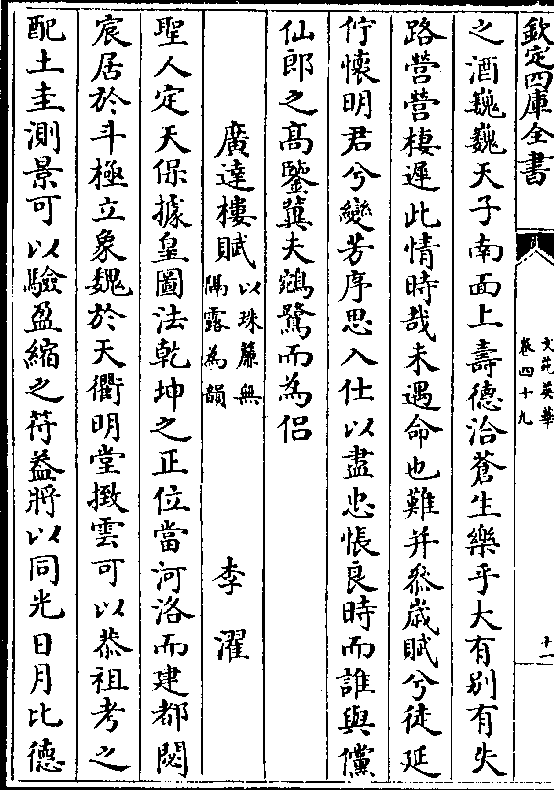 欽定四庫全書
文苑英華
卷四十九
十一
之酒巍巍天子南面上壽德洽蒼生樂乎大有别有失
路營營棲遲此情時哉未遇命也難并忝歲賦兮徒延
佇懷明君兮變芳序思入仕以盡忠悵良時而誰與儻
仙郎之髙鑒兾夫鵷鷺而為侣
廣達樓賦以珠簾無隔露為韻
李濯
聖人定天保據皇圖法乾坤之正位當河洛而建都閟
宸居於斗極立象魏於天衢明堂掞雲可以恭祖考之
配土圭測景可以驗盈縮之苻葢將以同光日月比德